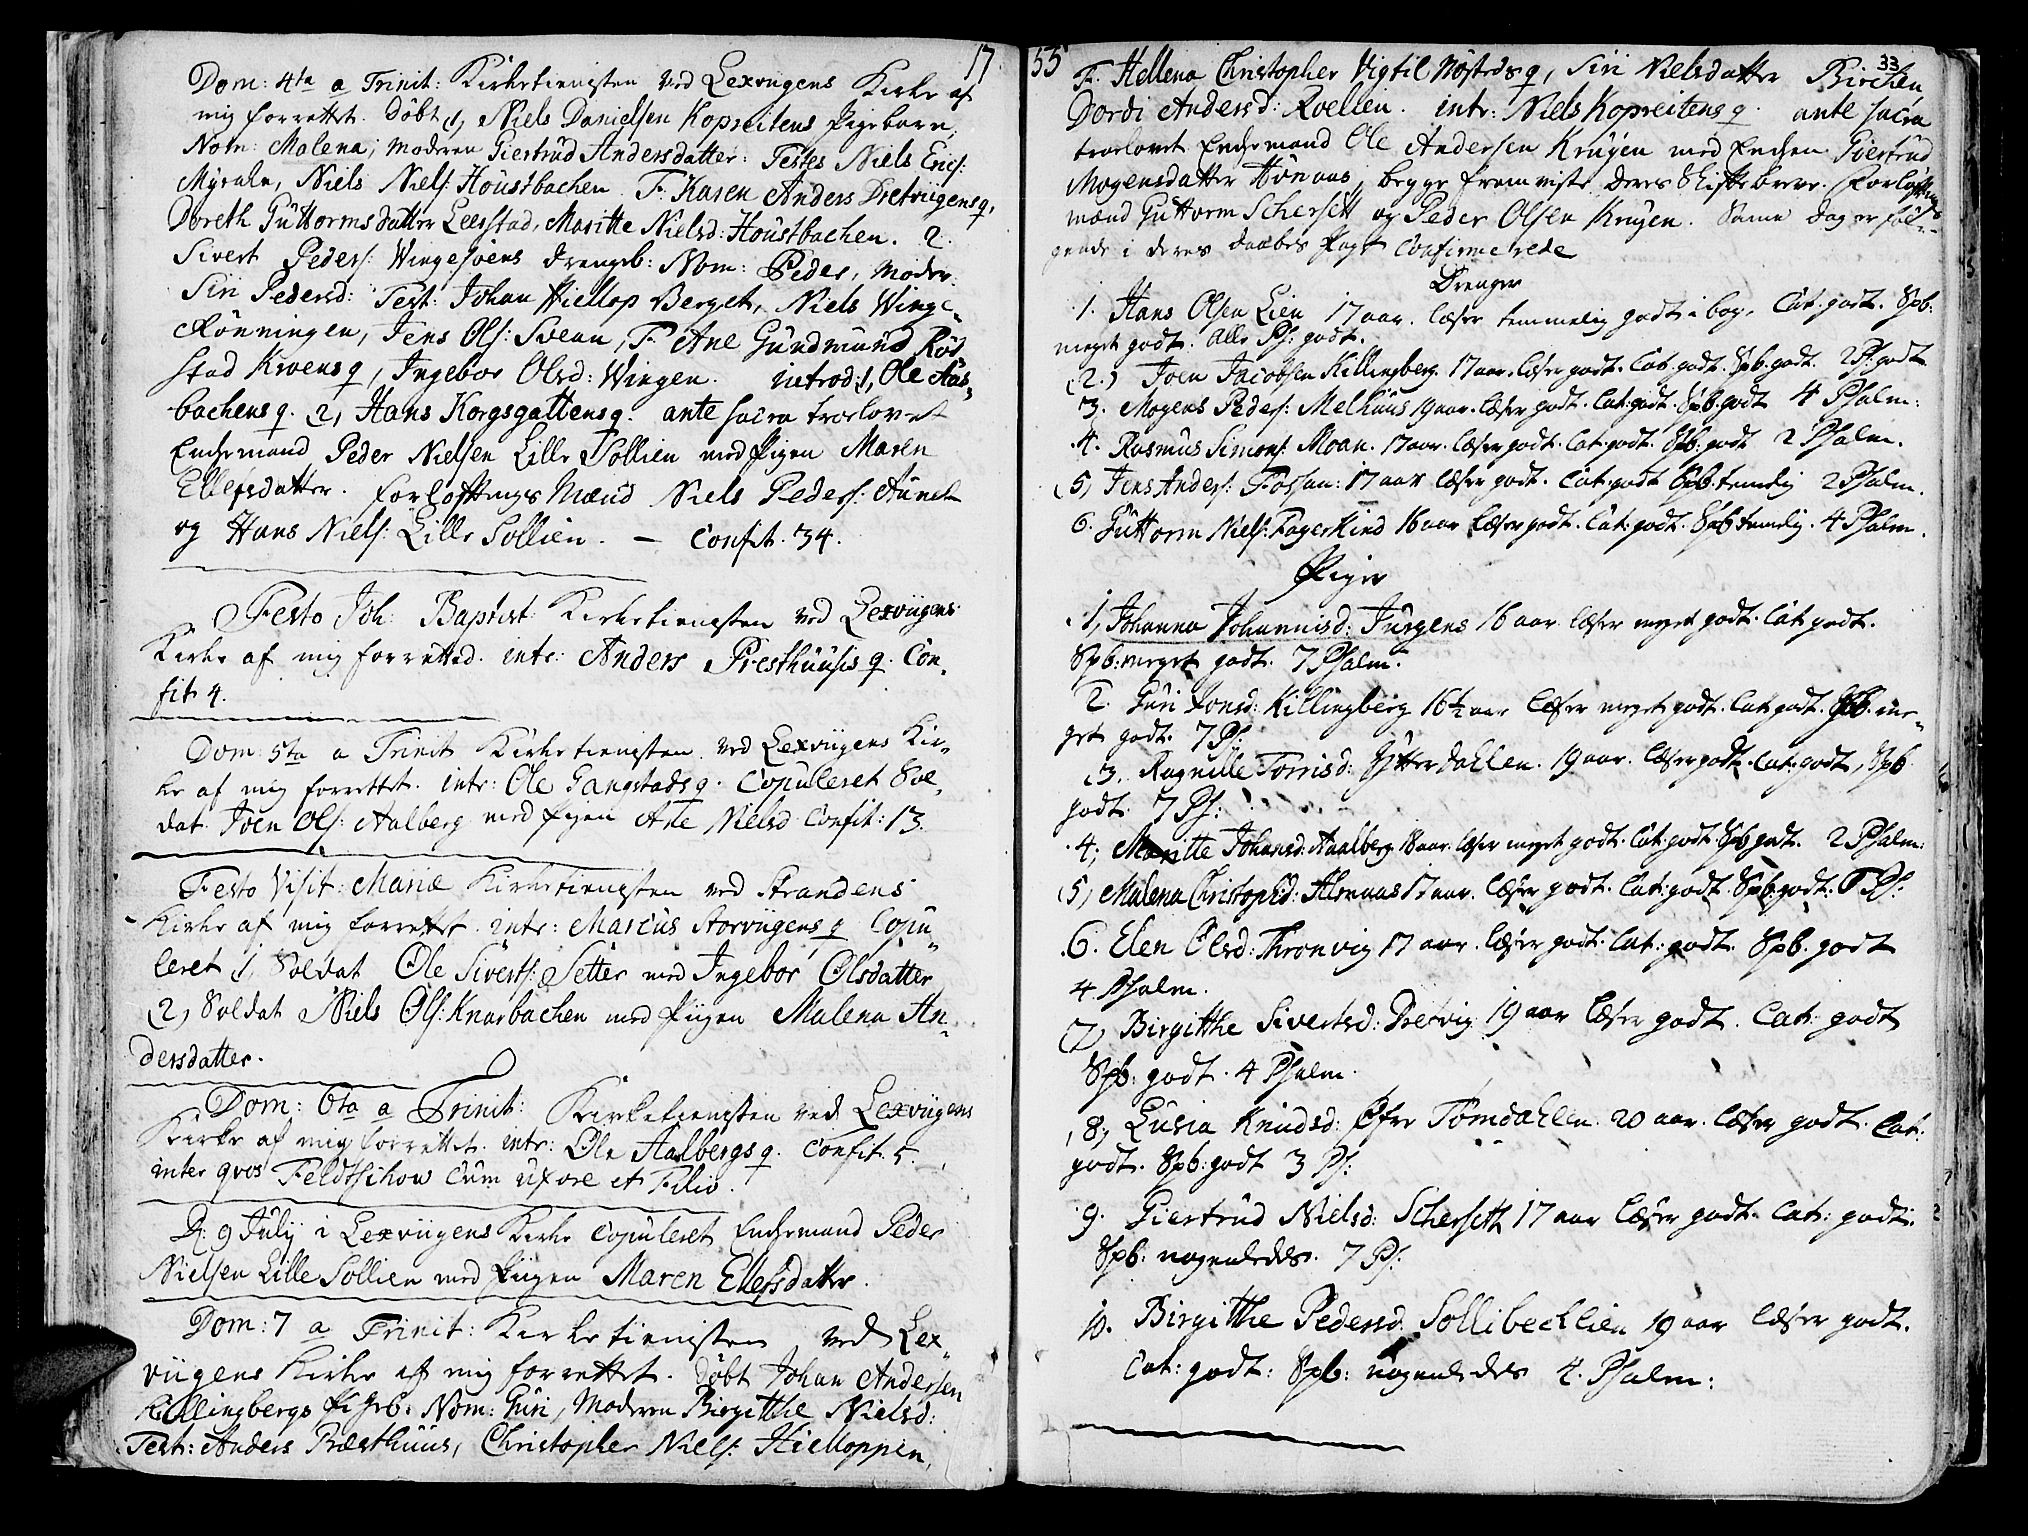 17
Dom: 4ta a Trinit: Kirketienisten ved Lexvigens Kirke af
mig forrettet. Döbt 1, Niels Danielsen Kopreitens Pigebarn,
Nom: Malena; Moderen Giertrud Andersdatter: Testes Niels Erics:
Myrahn, Niels Niels: Houstbachen. F. Karen Anders Dretvigens q,
Doreth Guttormsdatter Leerstad, Maritte Nielsd: Houstbachen. 2.
Sivert Peders: Wingesoens drengeb: Nom: Peder, Moder.
Siri Pedersd: Test: Johan Hiellop Berget, Niels Winge-
Rönningen, Jens Ols: Svean, F. Ane Gundmund Röd-
stad Kroens q, Ingebor Olsd: Wingen. introd: 1, Ole Aas-
bachens q. 2, Hans Korgsgattens q. ante sacra troelovet
Enchemand Peder Nielsen Lille Sollien med Pigen Maren
Ellefsdatter. Forloftnings Mænd Niels Peders: Aunet
og Hans Niels: Lille Sollien. — Confit. 34.
Festo Joh: Baptist: Kirketienisten ved Lexvigens
Kirke af mig forretted. intr: Anders Presthuusis q. Con-
fit 4.
Dom: 5ta a Trinit Kirketienisten ved Lexviigens Kir-
ke af mig forrettet. intr: Ole Gangstads q. Copuleret Sol-
dat Joen Ols: Aalberg med Pigen Ane Nielsd Confit: 13.
Festo Visit: Mariæ Kirketienisten ved Strandens
Kirke af mig forrettet. intr: Marcus Storviigens q Copu-
leret 1, Soldat Ole Siverts: Setter med Ingebor Olsdatter
2, Soldat Niels Ols: Knarbachen med Piigen Malena An-
dersdatter.
Dom: 6ta a Trinit: Kirketienisten ved Lexviigens
Kirke af mig forrettet. intr: Ole Aalbergs q. Confit. 5.
inter qvos Feldtschow cum uxore et Filio.
D: 9 Julij i Lexviigens Kirke copuleret Enchemand Peder
Nielsen Lille Sollien med Piigen Maren Ellefsdatter.
Dom: 7 a Trinit: Kirketienisten ved Lex-
viigens Kirke af mig forrettet. Döbt Johan Andersen
Killingbergs Pigeb: Nom: Guri, Moderen Birgitthe Nielsd:
Test: Anders Præsthuus, Christopher Niels: Hielloppen,
55
33
F. Hellena Christopher Vigtil Nösteds q, Siri Nielsdatter Birchen,
Dordi Andersd: Roellen. intr: Niels Kopreitens q. ante sacra
troelovet Enchemand Ole Andersen Krugen med Enchen Giertrud
Mogensdatter Hönaas, begge fremviste deres Skiftebreve. Forloftnings
mænd Guttorm Schersett og Peder Olsen Krugen. Samme dag er föl-
gende i deres daabes Pagt Confirmerede
Drenger
1. Hans Olsen Lien 17 aar. læser temmelig godt i bog. Cat: godt. Spb:
meget godt. Alle Ps: godt.
2. Joen Jacobsen Killingberg. 17 aar. læser godt. Cat: godt. Spb: godt. 2 Ps: godt
3. Mogens Peders: Melhuus 19 aar. læser godt. Cat: godt. Spb: godt 4 Psalm:
4. Rasmus Simons: Moan. 17 aar. læser godt. Cat: godt. Spb: godt 2 Psalm.
5, Jens Anders: Fossan: 17 aar læser godt. Cat: godt Spb: temelig 2 Psalm.
6. Guttorm Niels: Fagerkind 16 aar læser godt. Cat: godt. Spb temelig. 4 Psalm.
Piger
1, Johanna Johannisd: Jurgens 16 aar læser meget godt. Cat godt.
Spb: meget godt. 7 Psalm.
2. Guri Jonsd: Killingberg 16½ aar læser meget godt. Cat godt. Spb: me-
get godt. 7 Ps:
3. Ragnille Torrisd: Ytterdahlen. 19 aar. læser godt. Cat: godt, Spb
godt. 7 Ps:
4, Maritte Johansd: Aaalberg 18 aar. læser meget godt. Cat: godt Spb godt. 2 Psalm:
5, Malena Christophd: Alvenaas 17 aar. læser godt. Cat: godt. Spb: godt: Ps:
6. Elen Olsd: Thronvig 17 aar. læser godt. Cat: godt. Spb: godt
4 Psalm.
7, Birgitthe Sivertsd: Dretvig 19 aar læser godt. Cat: godt
Spb: godt. 4 Psalm.
8, Lusia Knudsd: Öfre Tömdahlen. 20 aar. læser godt. Cat:
godt. Spb: godt 3 Ps:
9. Giertrud Nielsd: Schersett 17 aar læser godt. Cat: godt.
Spb: nogenledes. 7 Ps:
10. Birgitthe Pedersd: Sollibechlien 19 aar læser godt.
Cat: godt: Spb: nogenledes 4. Psalm: